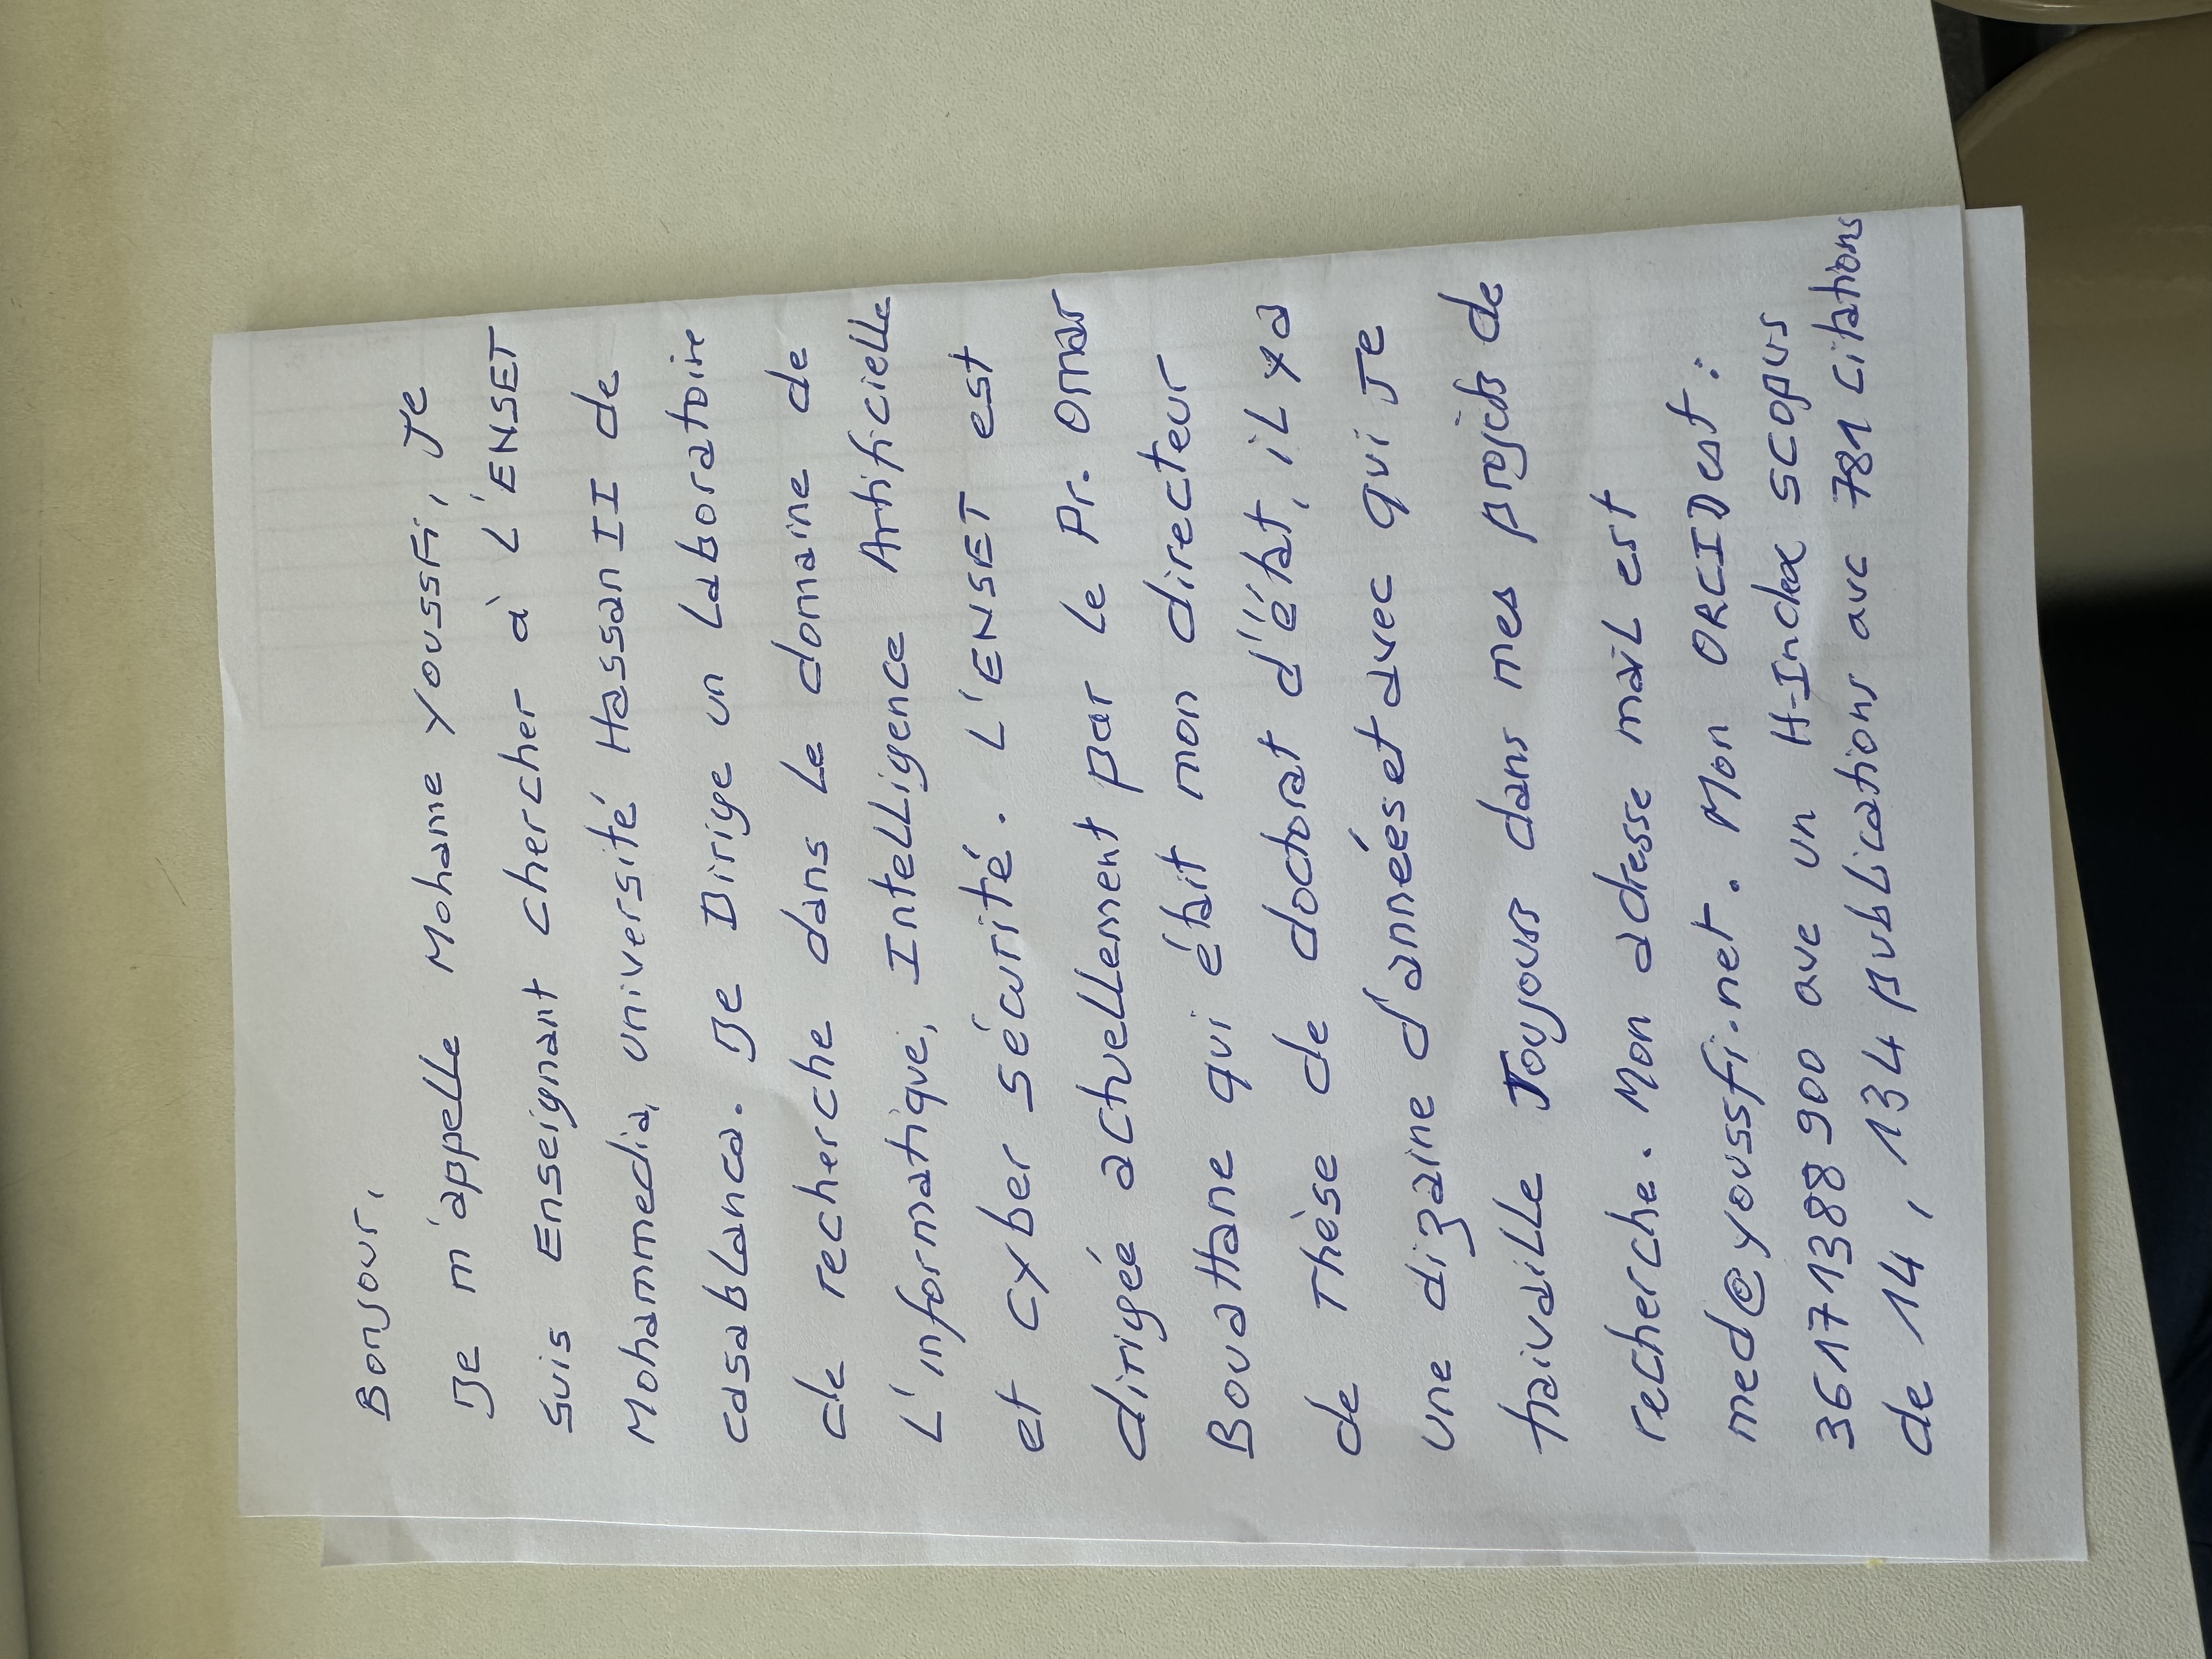 Bonjour,
Je m'appelle Mohame Youssfi, Je
suis Enseignant chercher à L'ENSET
Mohammedia, université Hassan II de
casablanca. Je Dirige un Laboratoire
de recherche dans Le domaine de
L'informatique, Intelligence Artificielle
et cyber sécurité. L'ENSET est
dirigée actuellement par Le Pr. Omar
Bouattane qui était mon directeur
de Thèse de doctorat d''état, il y a
une dizaine d'années et avec qui Je
traivaille Toujours dans mes projets de
recherche. Mon adresse mail est
med@youssfi.net. Mon ORCID est :
36171388900 ave un H-Index scopus
de 14, 134 publications avc 781 citations